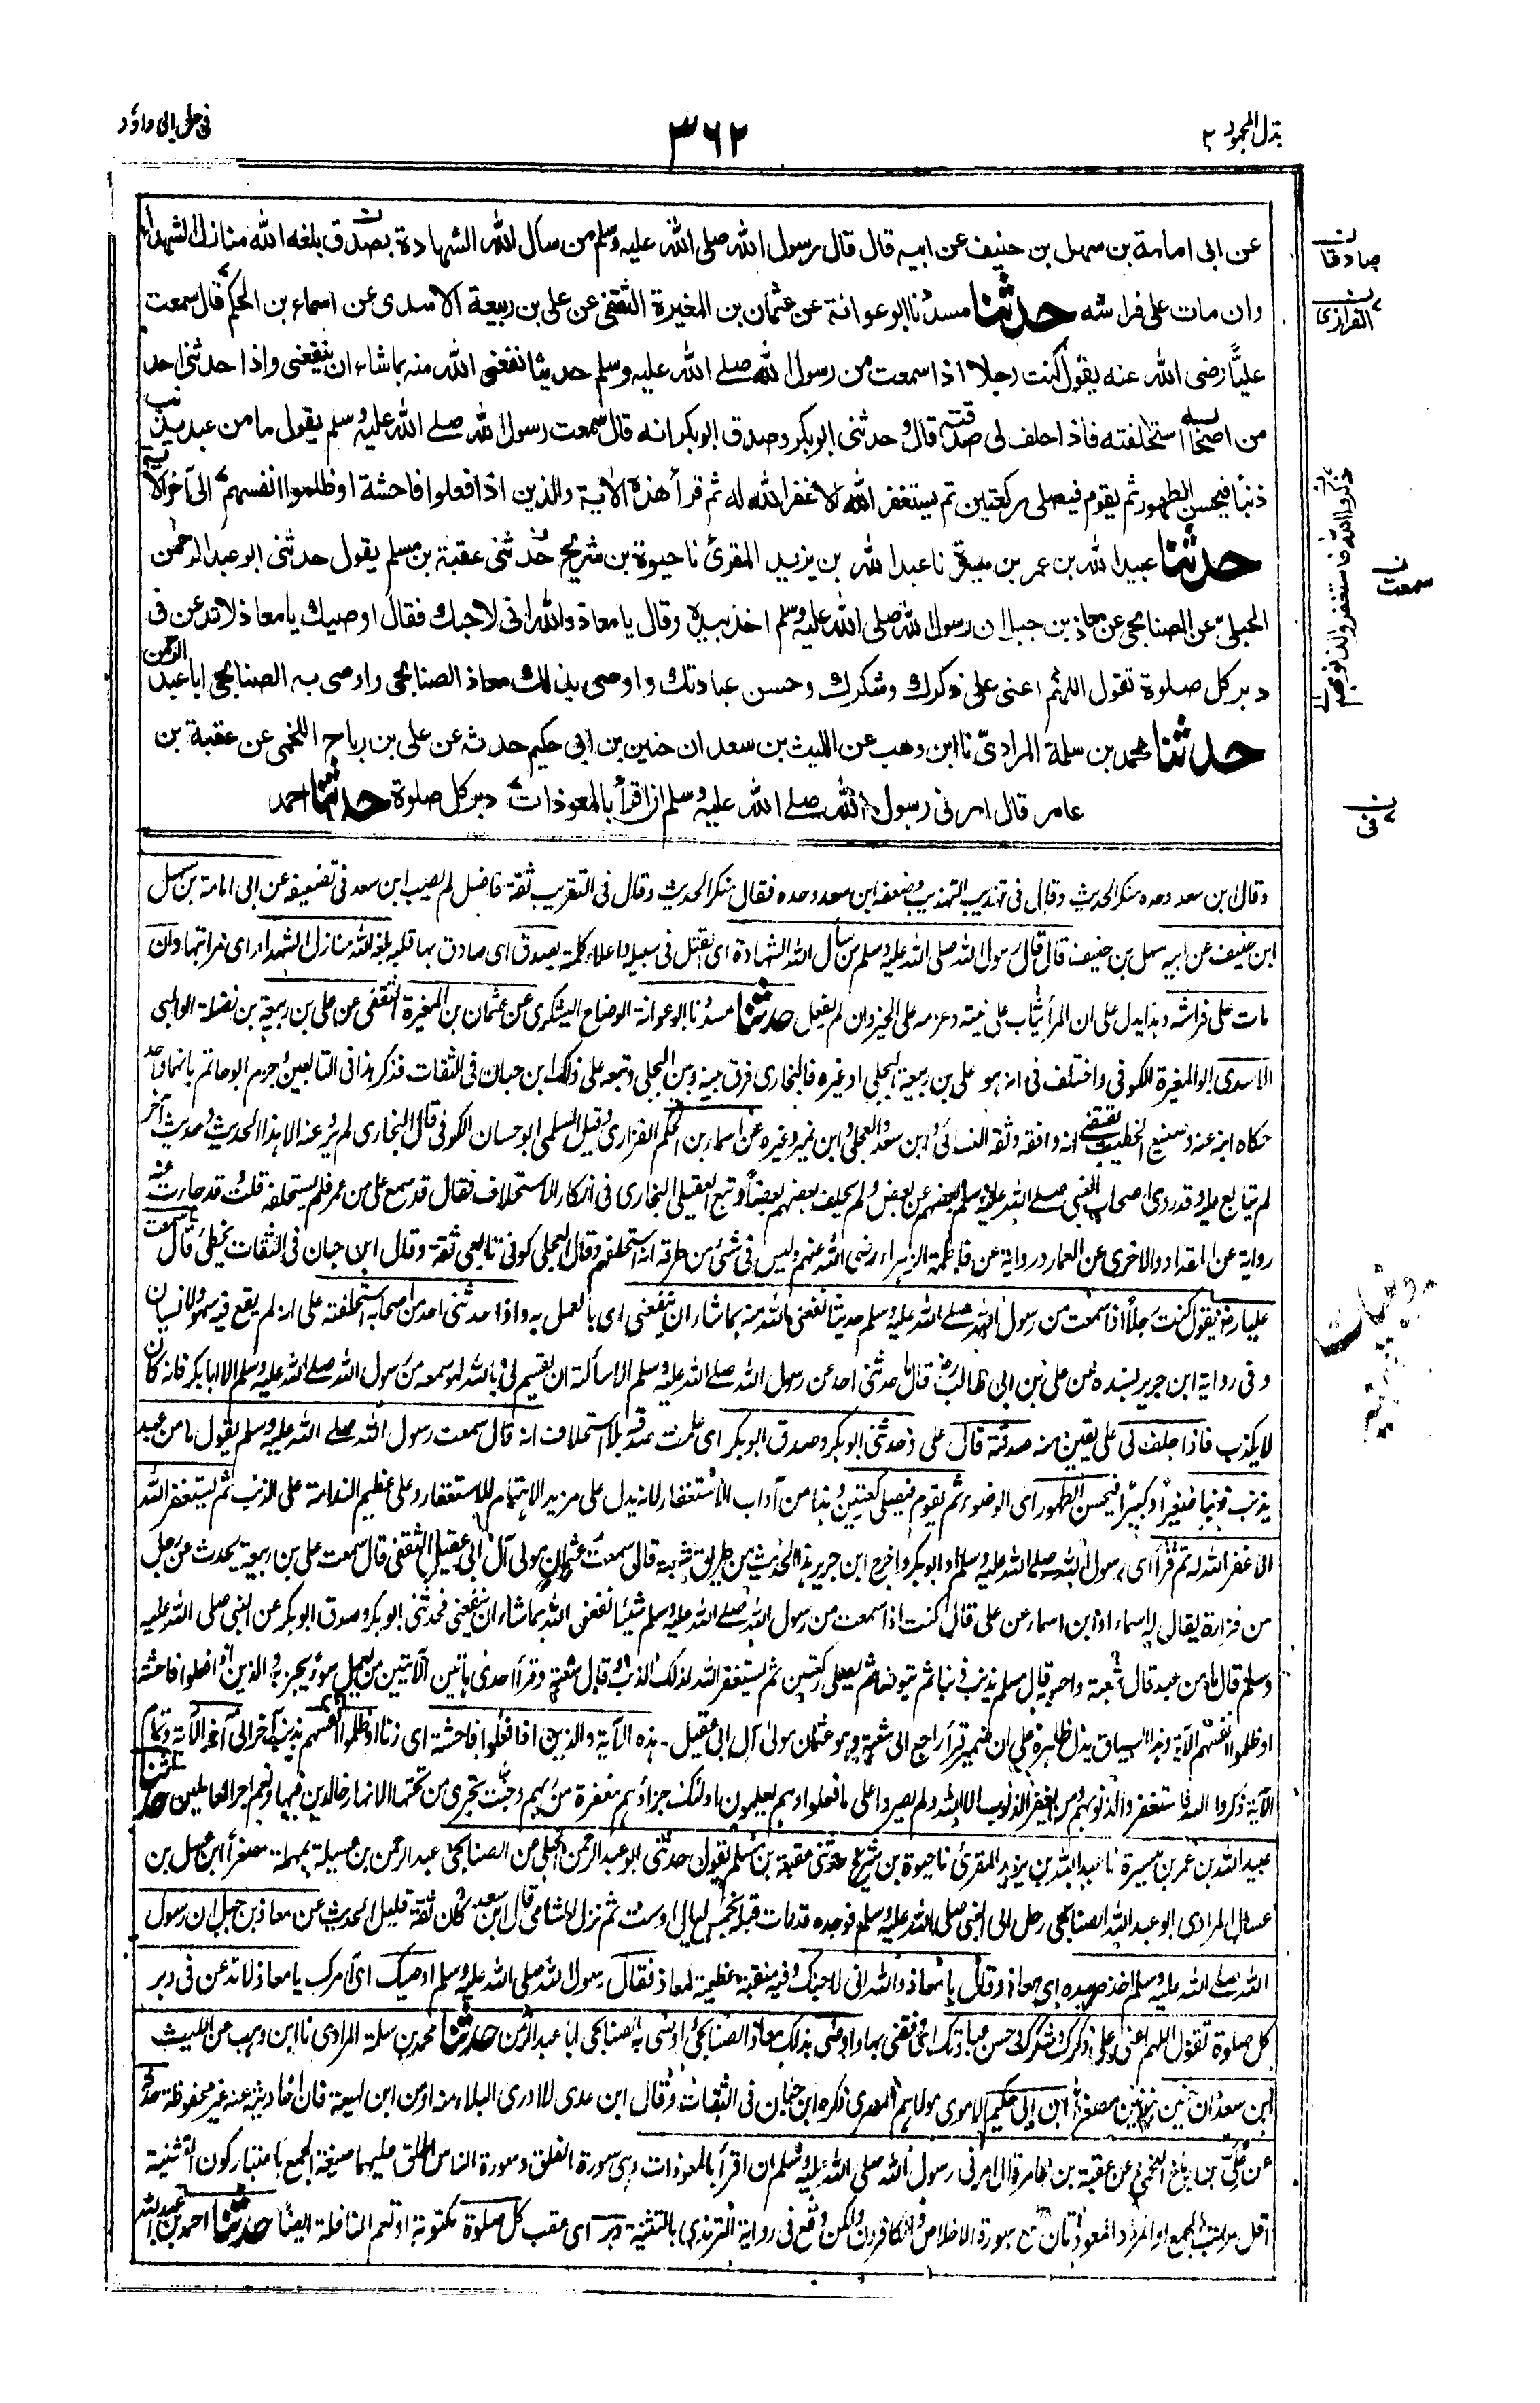 بذل المجهود ٢
٣٦٢
فى حل ابى داؤد
عن ابى امامة بن سهل بن حنيف عن ابيه قال قال رسول الله صلى الله عليه وسلم من سأل الله الشهادة بصدق بلغه الله منازل الشهداء
وان مات على فراشه حدثنا مسدد نا ابو عوانة عن عثمان بن المغيرة الثقفى عن على بن ربيعة الاسدى عن اسماء بن الحكم قال سمعت
عليًّا رضى الله عنه يقول كنت رجلا اذا سمعت من رسول الله صلے الله عليه وسلم حديثا نفعنى الله منه بما شاء ان ينفعنى واذا حدثنى احد
من اصحابه استحلفته فاذا حلف لى صدقته قال وحدثنى ابو بكر وصدق ابو بكر انه قال سمعت رسول الله صلے الله عليه وسلم يقول ما من عبد يذنب
ذنبًا فيحسن الطهور ثم يقوم فيصلى ركعتين ثم يستغفر الله الا غفر الله له ثم قرأ هذه الآية والذين اذا فعلوا فاحشة او ظلموا انفسهم الى آخر الآية
حدثنا عبيد الله بن عمر بن ميسرة نا عبد الله بن يزيد المقرئ نا حيوة بن شريح حدثنى عقبة بن مسلم يقول حدثنى ابو عبد الرحمن
الحبلى عن الصنابحى عن معاذ بن جبل ان رسول الله صلى الله عليه وسلم اخذ بيده وقال يا معاذ والله انى لاحبك فقال اوصيك يا معاذ لا تدعن فى
دبر كل صلوة تقول اللهم اعنى على ذكرك وشكرك وحسن عبادتك واوصى بذلك معاذ الصنابحى واوصى به الصنابحى ابا عبد الرحمن
حدثنا محمد بن سلمة المرادى نا ابن وهب عن الليث بن سعد ان حنين بن ابى حكيم حدثه عن على بن رباح اللخمى عن عقبة بن
عامر قال امرنى رسول الله صلے الله عليه وسلم ان اقرأ بالمعوذات دبر كل صلوة حدثنا احمد
صادقا
الفزارى
ذكروا الله فاستغفروا لذنوبهم
سمعت
فى
وقال ابن سعد وحده منكر الحديث وقال فى تهذيب التهذيب وضعفه ابن سعد وحده فقال منكر الحديث وقال فى التقريب ثقة فاضل لم يصب ابن سعد فى تضعيفه عن ابى امامة بن سهل
ابن حنيف عن ابيه سهل بن حنيف قال قال رسول الله صلى الله عليه وسلم من سأل الله الشهادة اى القتل فى سبيله واعلاء كلمته بصدق اى صادق بها قلبه بلغه الله منازل الشهداء اى مراتبها وان
مات على فراشه وهذا يدل على ان المرأ يثاب على نيته وعزمه على الخير وان لم يفعل حدثنا مسدد نا ابو عوانة الوضاح اليشكرى عن عثمان بن المغيرة الثقفى عن على بن ربيعة بن نضلة الوالبى
الاسدى ابو المغيرة الكوفى واختلف فى انه هو على بن ربيعة البجلى او غيره فالبخارى فرق بينه وبين البجلى وتبعه على ذلك ابن حبان فى الثقات فذكر هذا فى التابعين وجزم ابو حاتم بانهما واحد
حكاه ابنه عنه وصنيع الخطيب يقتضى انه وافقه وثقه النسائى وابن سعد والعجلى وابن نمير وغيره عن اسماء بن الحكم الفزارى وقيل السلمى ابو حسان الكوفى قال البخارى لم يرو عنه الا هذا الحديث وحديث آخر
لم يتابع عليه وقد روى اصحاب النبى صلے الله عليه وسلم بعضهم عن بعض ولم يحلف بعضهم بعضًا وتبع العقيلى البخارى فى انكار الاستحلاف فقال قد سمع على من عمر فلم يستحلفه قلت قد جاءت عنه
رواية عن المقداد والاخرى عن العمار ورواية عن فاطمة الزهراء رضى الله عنهم وليس فى شئ من طرقه انه استحلفهم وقال العجلى كوفى تابعى ثقة وقال ابن حبان فى الثقات يخطئ قال سمعت
عليا رضـ يقول كنت رجلًا اذا سمعت من رسول الله صلے الله عليه وسلم حديثا نفعنى الله منه بما شاء ان ينفعنى اى بالعمل به واذا حدثنى احد من اصحابه استحلفته على انه لم يقع فيه سهو ولا نسيان
وفى رواية ابن جرير بسنده عن على بن ابى طالب رضـ قال ما حدثنى احد عن رسول الله صلے الله عليه وسلم الا سألته ان يقسم لى بالله لهو سمعه من رسول الله صلے الله عليه وسلم الا ابا بكر فانه كان
لا يكذب فاذا حلف لى على يقين منه صدقته قال على وحدثنى ابو بكر وصدق ابو بكر اى علمت صدقه بلا استحلاف انه قال سمعت رسول الله صلے الله عليه وسلم يقول ما من عبد
يذنب ذنبا صغيرًا او كبيرًا فيحسن الطهور اى الوضوء ثم يقوم فيصلى ركعتين وهذا من آداب الاستغفار لانه يدل على مزيد الاهتمام للاستغفار وعلى عظيم الندامة على الذنب ثم يستغفر الله
الا غفر الله له ثم قرأ اى رسول الله صلے الله عليه وسلم او ابو بكر واخرج ابن جرير هذا الحديث من طريق شعبة قال سمعت عثمان مولى آل ابى عقيل الثقفى قال سمعت على بن ربيعة يحدث عن رجل
من فزارة يقال له اسماء او ابن اسماء عن على قال كنت اذا سمعت من رسول الله صلے الله عليه وسلم شيئا نفعنى الله بما شاء ان ينفعنى فحدثنى ابو بكر وصدق ابو بكر عن النبى صلى الله عليه
وسلم قال ما من عبد قال شعبة واحسبه قال مسلم يذنب ذنبا ثم يتوضأ ثم يصلى ركعتين ثم يستغفر الله لذلك الذنب وقال شعبة وقرأ احدى هاتين الآيتين من يعمل سوءً يجز به والذين اذا فعلوا فاحشة
او ظلموا انفسهم الآية وهذا السياق يدل ظاهره على ان ضمير قرأ راجع الى شعبة وهو عثمان مولى آل ابى عقيل ۔ هذه الآية والذين اذا فعلوا فاحشة اى زنا او ظلموا انفسهم بذنب آخر الى آخر الآية وتمام
الآية ذكروا الله فاستغفروا لذنوبهم ومن يغفر الذنوب الا الله ولم يصروا على ما فعلوا وهم يعلمون اولئك جزاؤهم مغفرة من ربهم وجنت تجرى من تحتها الانهار خالدين فيها ونعم اجر العاملين حدثنا
عبيد الله بن عمر بن ميسرة نا عبد الله بن يزيد المقرئ نا حيوة بن شريح حدثنى عقبة بن مسلم يقول حدثنى ابو عبد الرحمن الحبلى عن الصنابحى عبد الرحمن بن عسيلة بمهملة مصغرًا ابن عسل بن
عسال المرادى ابو عبد الله الصنابحى رحل الى النبى صلى الله عليه وسلم فوجده قد مات قبله بخمس ليال او ست ثم نزل الشام قال ابن سعد كان ثقة قليل الحديث عن معاذ بن جبل ان رسول
الله صلے الله عليه وسلم اخذ بيده اى بمعاذ وقال يا معاذ والله انى لاحبك وفيه منقبة عظيمة لمعاذ فقال رسول الله صلى الله عليه وسلم اوصيك اى آمرك يا معاذ لا تدعن فى دبر
كل صلوة تقول اللهم اعنى على ذكرك وشكرك وحسن عبادتك اى وفقنى بها واوصى بذلك معاذ الصنابحى واوصى به الصنابحى ابا عبد الرحمن حدثنا محمد بن سلمة المرادى نا ابن وهب عن الليث
ابن سعد ان حنين بنونين مصغرًا ابن ابى حكيم الاموى مولاهم المصرى ذكره ابن حبان فى الثقات وقال ابن عدى لا ادرى البلاء منه او من ابن لهيعة فان احاديثه عنه غير محفوظة حدثه
عن على بن رباح اللخمى عن عقبة بن عامر قال امرنى رسول الله صلى الله عليه وسلم ان اقرأ بالمعوذات وهى سورة الفلق وسورة الناس اطلق عليهما صيغة الجمع باعتبار كون التثنية
اقل مراتب الجمع او المراد المعوذتان مع سورة الاخلاص والكافرون ولكن وقع فى رواية الترمذى بالتثنية دبر اى عقب كل صلوة مكتوبة او تعم النافلة ايضًا حدثنا احمد بن عبيد الله